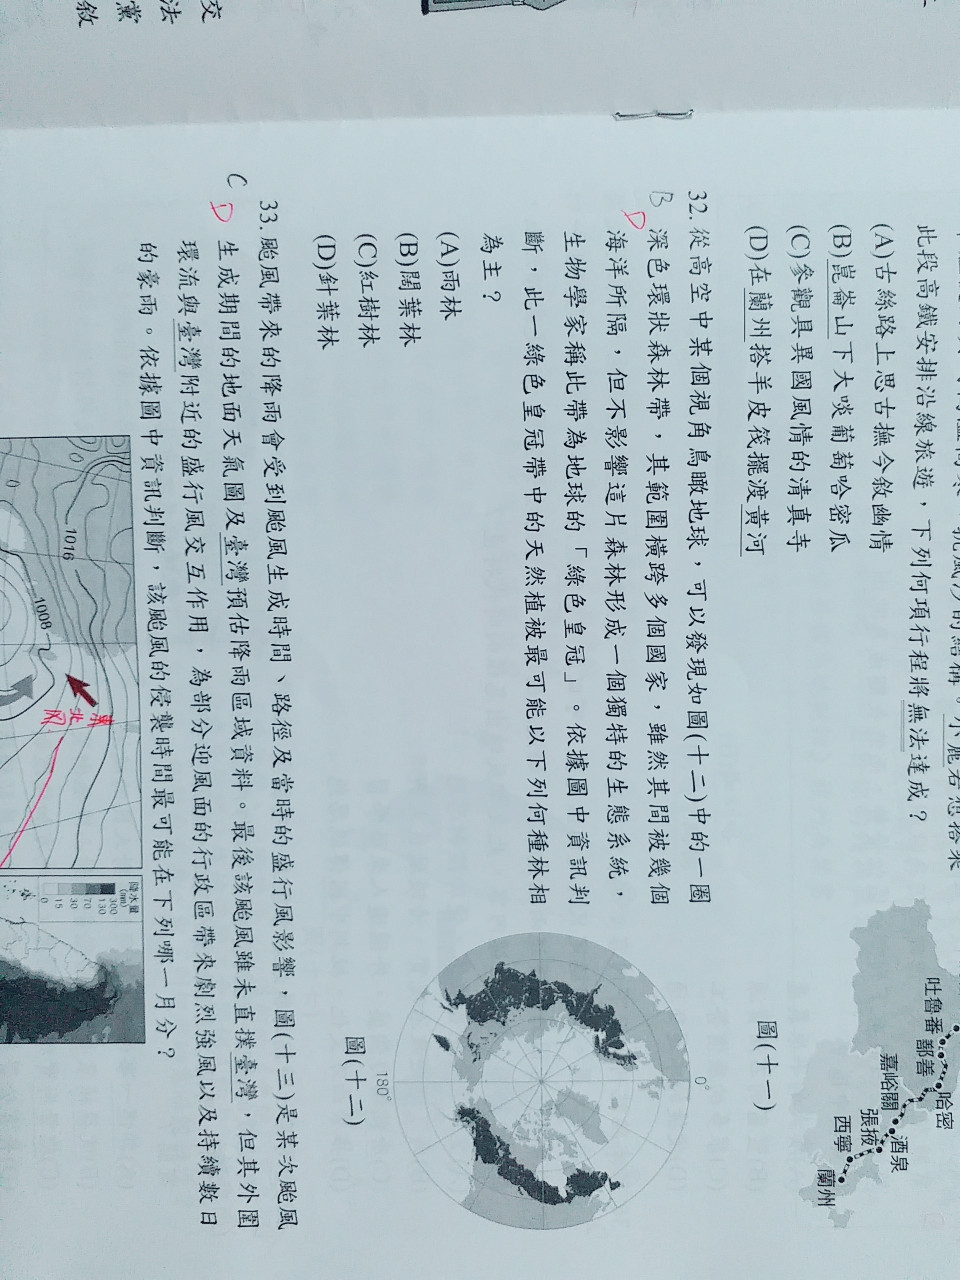 此段高鐵安排沿線旅遊，下列何項行程將無法達成？
(A)古絲路上思古撫今敘幽情
(B)崑崙山下大啖葡萄哈密瓜
(C)參觀具異國風情的清真寺
(D)在蘭州搭羊皮筏擺渡黃河
吐魯番
鄯善
哈密
嘉峪關
酒泉
張掖
西寧
蘭州
圖(十一)
32. 從高空中某個視角鳥瞰地球，可以發現如圖(十二)中的一圈
B D
深色環狀森林帶，其範圍橫跨多個國家，雖然其間被幾個
海洋所隔，但不影響這片森林形成一個獨特的生態系統，
生物學家稱此帶為地球的「綠色皇冠」。依據圖中資訊判
斷，此一綠色皇冠帶中的天然植被最可能以下列何種林相
為主？
(A)雨林
(B)闊葉林
(C)紅樹林
(D)針葉林
0°
180°
圖(十二)
33. 颱風帶來的降雨會受到颱風生成時間、路徑及當時的盛行風影響，圖(十三)是某次颱風
C D
生成期間的地面天氣圖及臺灣預估降雨區域資料。最後該颱風雖未直撲臺灣，但其外圍
環流與臺灣附近的盛行風交互作用，為部分迎風面的行政區帶來劇烈強風以及持續數日
的豪雨。依據圖中資訊判斷，該颱風的侵襲時間最可能在下列哪一月分？
1016
1008
東
北
風
降水量
(mm)
300
130
70
30
15
0
交
法
黨
敘